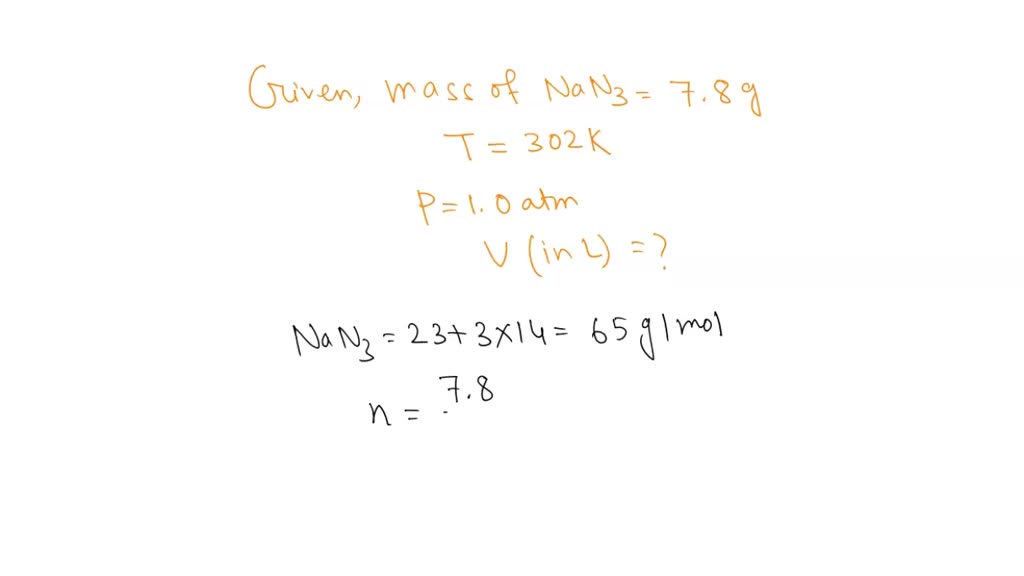 Given, mass of NaN3 = 7.8 g
T = 302 K
P = 1.0 atm
V (in L) = ?
NaN3 = 23 + 3 × 14 = 65 g/mol
n = 7.8